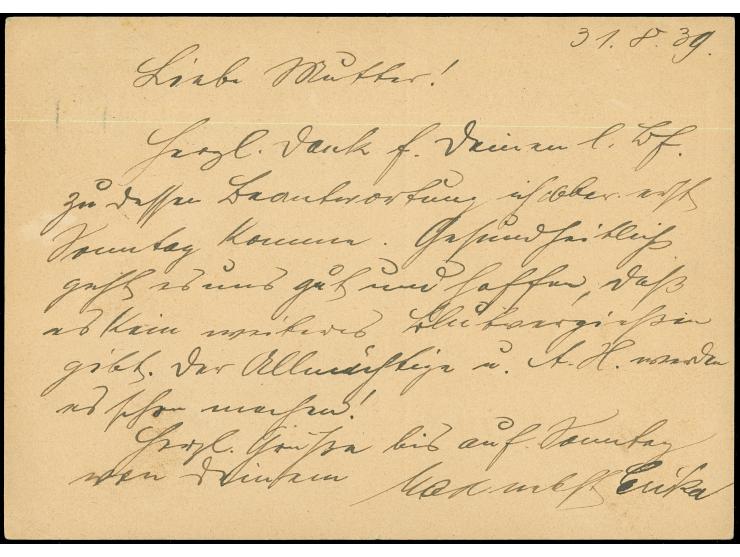 31.8.39.
Liebe Mutter!
Herzl. Dank f. Deinen l. Bf.
zu dessen Beantwortung ich aber erst
Sonntag komme. Gesundheitlich
geht es uns gut und hoffen, daß
es kein weiteres Blutvergießen
gibt. Der Allmächtige u. A. H. werden
es schon machen!
Herzl. Grüße bis auf Sonntag
von Deinem nebst Erika